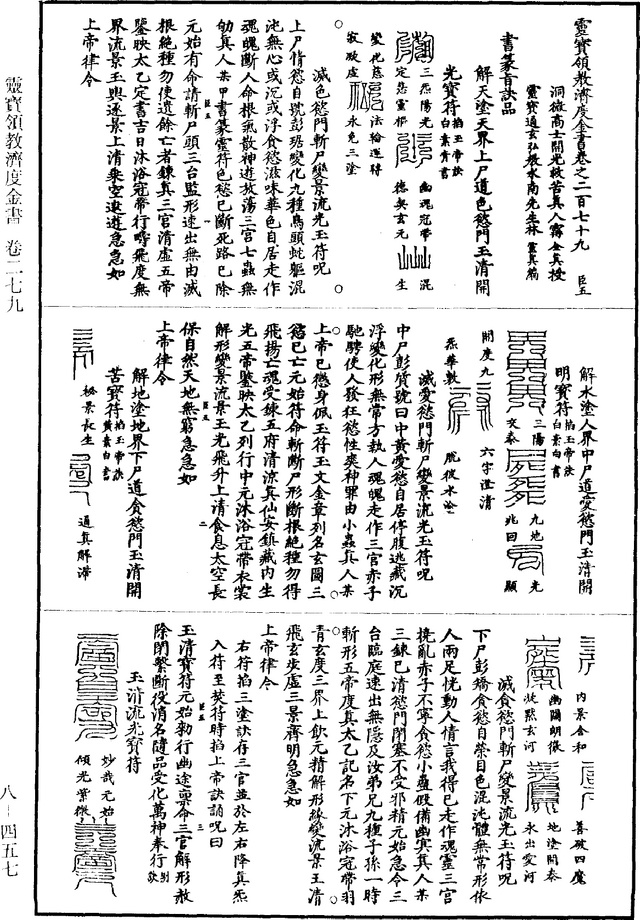 靈寶領教濟度金書卷之二百七十九 臣五
洞微高士開光救苦真人甯全真授
靈寶通玄弘教水南先生林靈真編
書篆旨訣品
解天塗天界上尸道色慾門玉清開
光寶符 掐玉帝訣 白素青書
三炁陽光
幽魂冠帶
混
定炁靈都
德契玄元
生
變化慈
法輪運轉
寂政虛
永免三塗
滅色慾門斬尸變景流光玉符呪
上尸情慾自號彭琚變化九種鳥頭蛇軀混
沌無心或沉或浮食慾滋味華色自居走作
魂魄斷人命根氣散神遊放蕩三宮七蟲無
劬真人某甲書篆靈符色慾已斷死路已除
元始有命請斬尸頭三台監形速出無由滅
根絕種勿使遺餘亡者鍊真三宮清虛五帝
鑒映太乙定書吉日沐浴冠帶行時飛度無
界流景玉輿逐景上清乘空遨遊急急如
上帝律令
解水塗人界中尸道愛慾門玉清開
明寶符 掐玉帝訣 白素白書
三陽
九炁
光
交泰
兆回
顯
開度九
六宇澄清
炁華敷
脫彼水塗
滅愛慾門斬尸變景流光玉符呪
中尸彭質號曰中黃愛慾自居停腹逃藏沉
浮變化形無常方執人魂魄走作三宮赤子
馳騁使人發狂慾性喪神罪由小蟲真人某
上帝已懲身佩玉符玉文金章列名玄圖三
慾已亡元始符命斬斷尸形斷根絕種勿得
飛揚亡魂受鍊五府清涼真仙安鎮藏內生
光五帝鑒映太乙列行中元沐浴冠帶衣裳
解形變景流景玉光飛升上清食息太空長
保自然天地無窮急急如
上帝律令
解地塗地界下尸道食慾門玉清開
苦寶符 掐玉帝訣 黃素白書
秘景長生
通真解滯
內景含和
善破四魔
幽關朗徹
地塗開泰
凝熙玄河
永出愛河
滅食慾門斬尸變景流光玉符呪
下尸彭矯食慾自榮目色混沌體無常形依
人兩足恍動人情言我得已走作魂靈三宮
撓亂赤子不寧食慾小蠱假備幽冥真人某
三鍊已清慾門閉塞不受邪精元始急令三
台臨庭速出無隱及汝弟兄九種子孫一時
斬形五帝度真太乙記名下元沐浴冠帶羽
青玄度三界上飲元精解形緣變流景玉清
飛玄步虛三景齊明急急如
上帝律令
右符掐三塗訣存三官並於左右降真炁
入符至焚符時掐上帝訣誦呪曰
玉清寶符元始勑行幽途稟命三官解形赦
除閉繫斷役消名隨品受化萬神奉行 別敕
玉清流光寶符
妙哉元始
傾光紫微
靈寶領教濟度金書 卷二七九
八—四五七